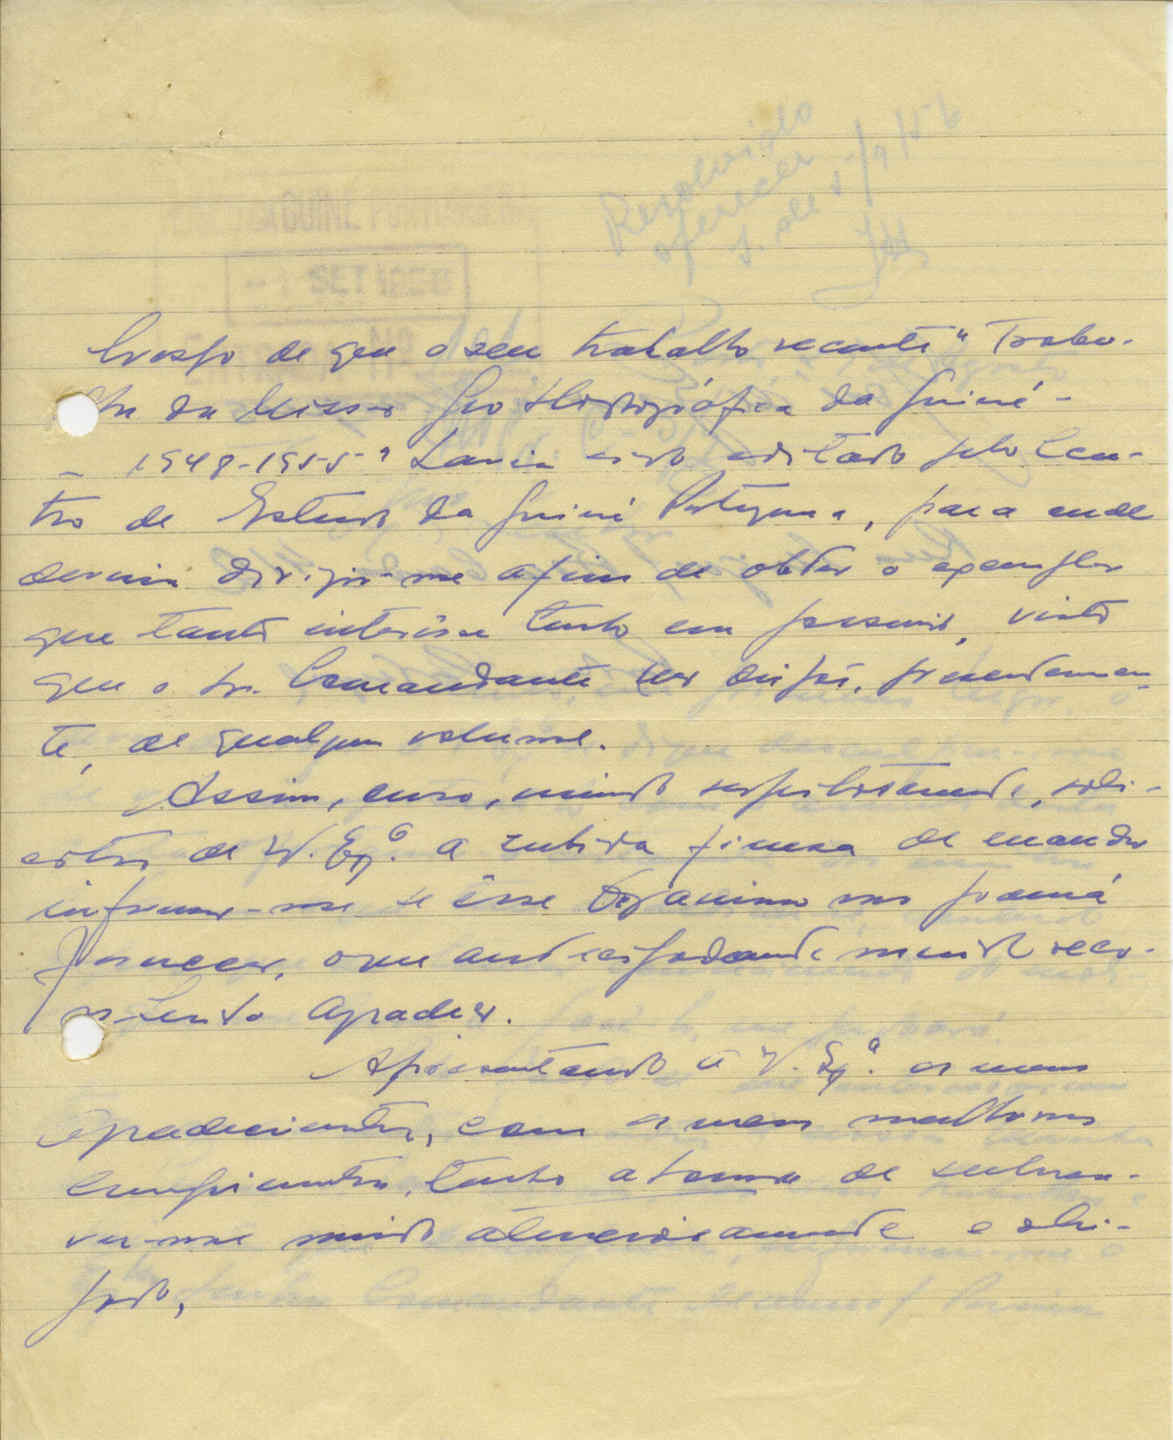 Resolvido
oferecer
1. de 5/9/56
GUINÉ PORTUGUESA
-1 SET 1956
de que o seu trabalho recente "Traba-
lhos da Missão Geo Hidrográfica da Guiné -
- 1948-1955" havia sido editado pelo Cen-
tro de Estudos da Guiné Portuguesa, para onde
deveria dirigir-me afim de obter o exemplar
que tanto interêsse tenho em possuir, visto
que o Sr. Comandante não dispõe, presentemen-
te, de qualquer volume.
Assim, ouso, muito respeitosamente, soli-
citar de V. Exª. a subida fineza de mandar
informar-me se êsse Organismo mo poderá
fornecer, o que antecipadamente muito reco-
nhecido agradeço.
Apresentando a V. Exª. os meus
agradecimentos, com os meus melhores
cumprimentos, tenho a honra de subscre-
ver-me muito atenciosamente e obri-
gado,